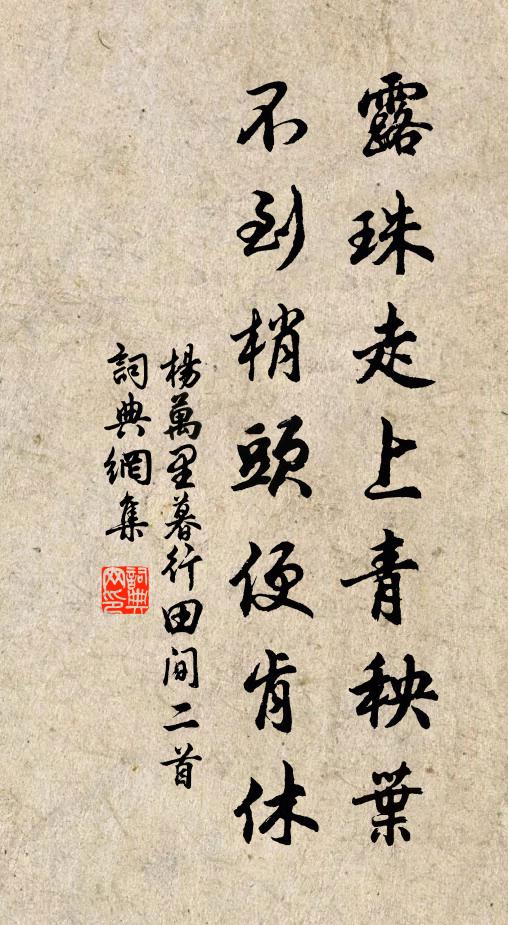 露珠走上青秧葉
不到梢頭便肯休
楊萬里暮行田間二首
詞典網集
詞典網印